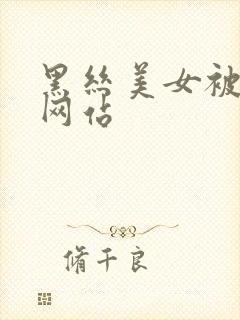 黑丝美女被
网站
脩千良